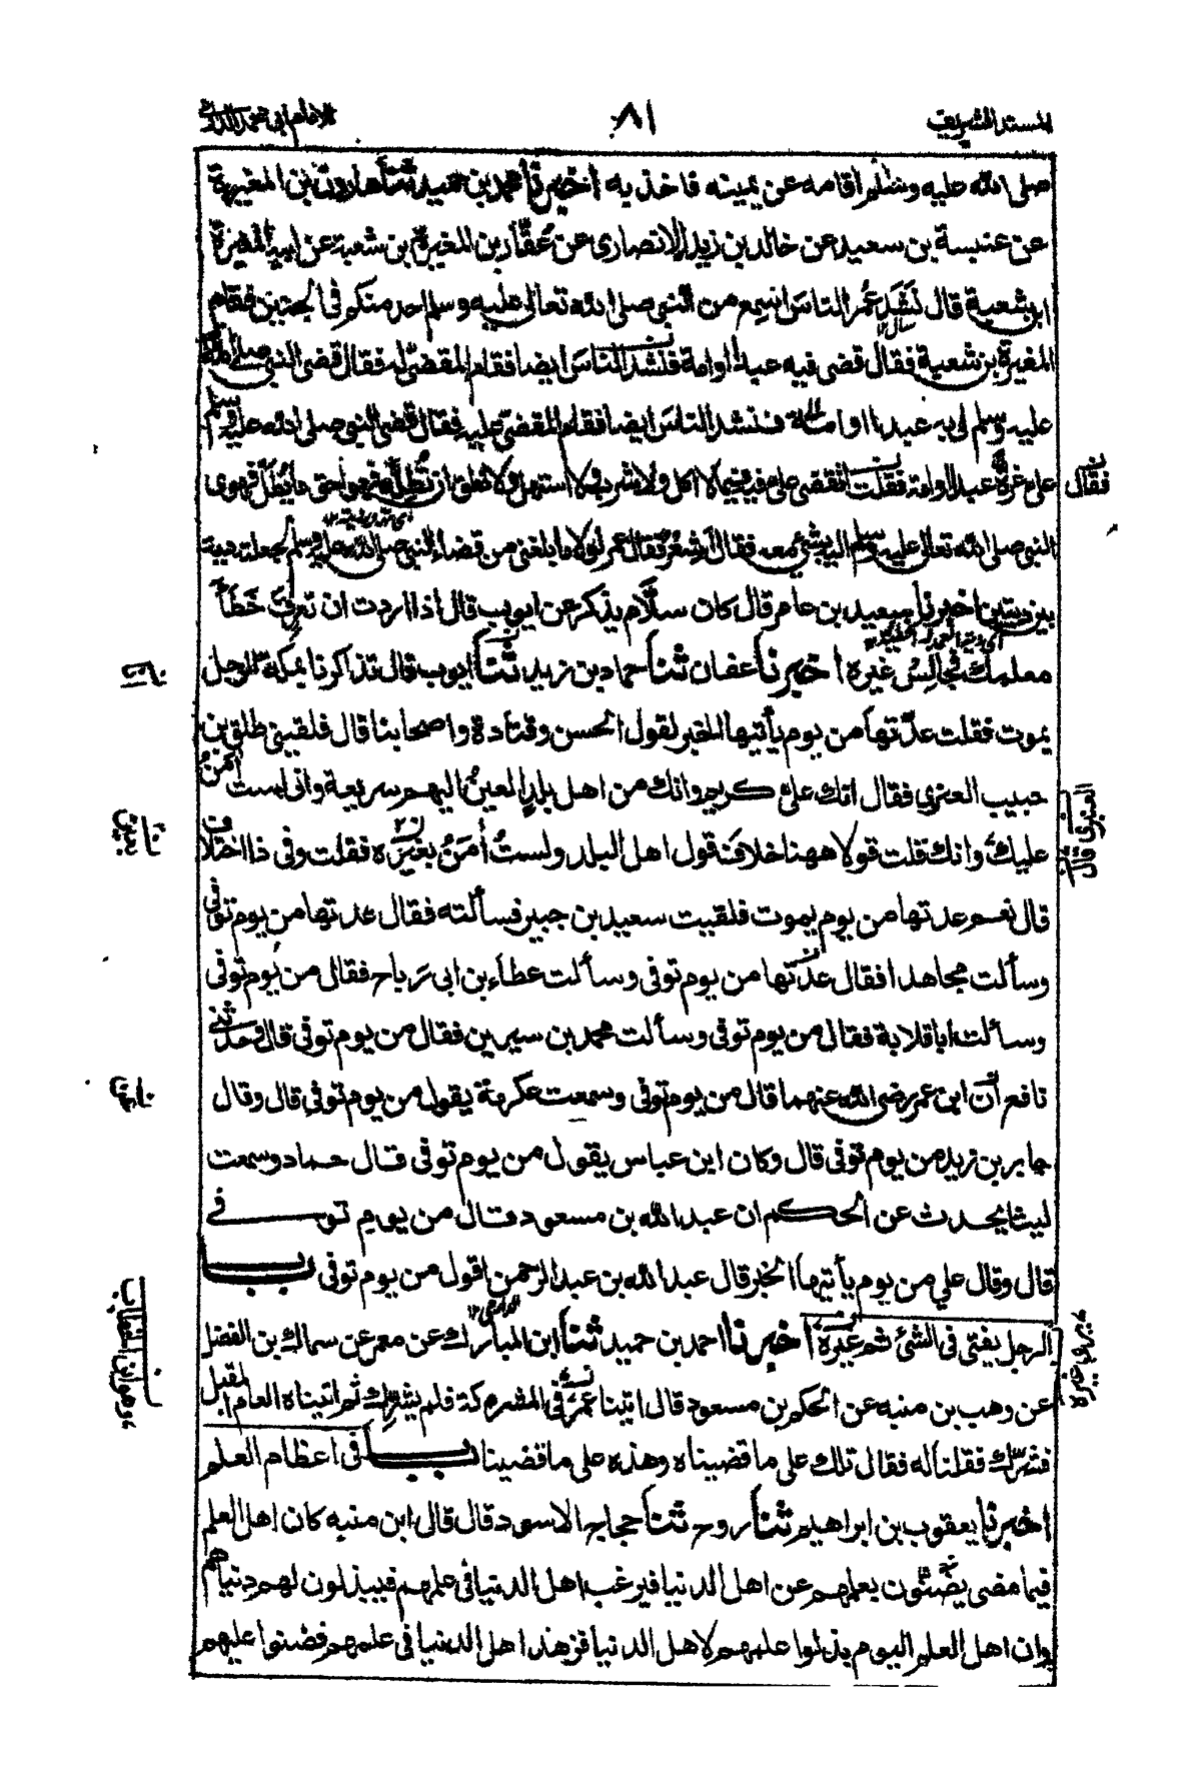 المسند الشريف
٨١
للامام ابى محمد الدارمى
صلى الله عليه وسلم اقامه عن يمينه فاخذ به اخبرنا محمد بن حميد ثنا هارون بن المغيرة
عن عنبسة بن سعيد عن خالد بن زيد الانصارى عن عقار بن المغيرة بن شعبة عن ابيه المغيرة
ابن شعبة قال نشد عمر الناس اسمع من النبى صلى الله تعالى عليه وسلم احد منكم فى الجنين فقام
المغيرة بن شعبة فقال قضى فيه عبدا او امة فنشد الناس ايضا فقام المقضى له فقال قضى النبى صلى الله
عليه وسلم لى به عبدا او امة فنشد الناس ايضا فقام المقضى عليه فقال قضى النبى صلى الله عليه وسلم
على غرة عبدا او امة فقلت اتقضى على فيه فيما لا اكل ولا شرب ولا استهل ولا نطق ان تطله فهو احق ما يطل فهوى
فقال
النبى صلى الله تعالى عليه وسلم اليه بشئ معه فقال اشعر فقال عمر لولا ما بلغنى من قضاء النبى صلى الله عليه وسلم لجعلته دية
بين ديتين اخبرنا سعيد بن عامر قال كان سلام يذكر عن ايوب قال اذا اردت ان تعرف خطأ
معلمك فجالس غيره اخبرنا عفان ثنا حماد بن زيد ثنا ايوب قال تذاكرنا بمكة الرجل
يموت فقلت عدتها من يوم يأتيها الخبر لقول الحسن وقتادة واصحابنا قال فلقينى طلق بن
حبيب العنزى فقال انك على كريم وانك من اهل بلد العين اليهم سريعة وانى لست آمن
العنبرى قال
عليك وانك قلت قولا ههنا خلاف قول اهل البلد ولست أمن بغيره فقلت وفى ذا اختلاف
قال نعم عدتها من يوم يموت فلقيت سعيد بن جبير فسألته فقال عدتها من يوم توفى
وسألت مجاهدا فقال عدتها من يوم توفى وسألت عطاء بن ابى رباح فقال من يوم توفى
وسألت ابا قلابة فقال من يوم توفى وسألت محمد بن سيرين فقال من يوم توفى قال وحدثنى
نافع أن ابن عمر رضى الله عنهما قال من يوم توفى وسمعت عكرمة يقول من يوم توفى قال وقال
جابر بن زيد من يوم توفى قال وكان ابن عباس يقول من يوم توفى قال حماد وسمعت
ليثا يحدث عن الحكم ان عبد الله بن مسعود قال من يوم توفى
قال وقال علي من يوم يأتيها الخبر قال عبد الله بن عبد الرحمن اقول من يوم توفى باب
الرجل يفتى فى الشئ ثم غيره اخبرنا احمد بن حميد ثنا ابن المبارك عن معمر عن سماك بن الفضل
عن وهب بن منبه عن الحكم بن مسعود قال اتينا عمر فى المشركة فلم يشرك ثم اتيناه العام المقبل
فشرك فقلنا له فقال تلك على ما قضيناه وهذه على ما قضينا باب فى اعظام العلم
اخبرنا يعقوب بن ابراهيم ثنا روح ثنا حجاج الاسود قال قال ابن منبه كان اهل العلم
فيما مضى يضنون بعلمهم عن اهل الدنيا فيرغب اهل الدنيا فى علمهم فيبذلون لهم دنياهم
وان اهل العلم اليوم بذلوا علمهم لاهل الدنيا فزهد اهل الدنيا فى علمهم فضنوا عليهم